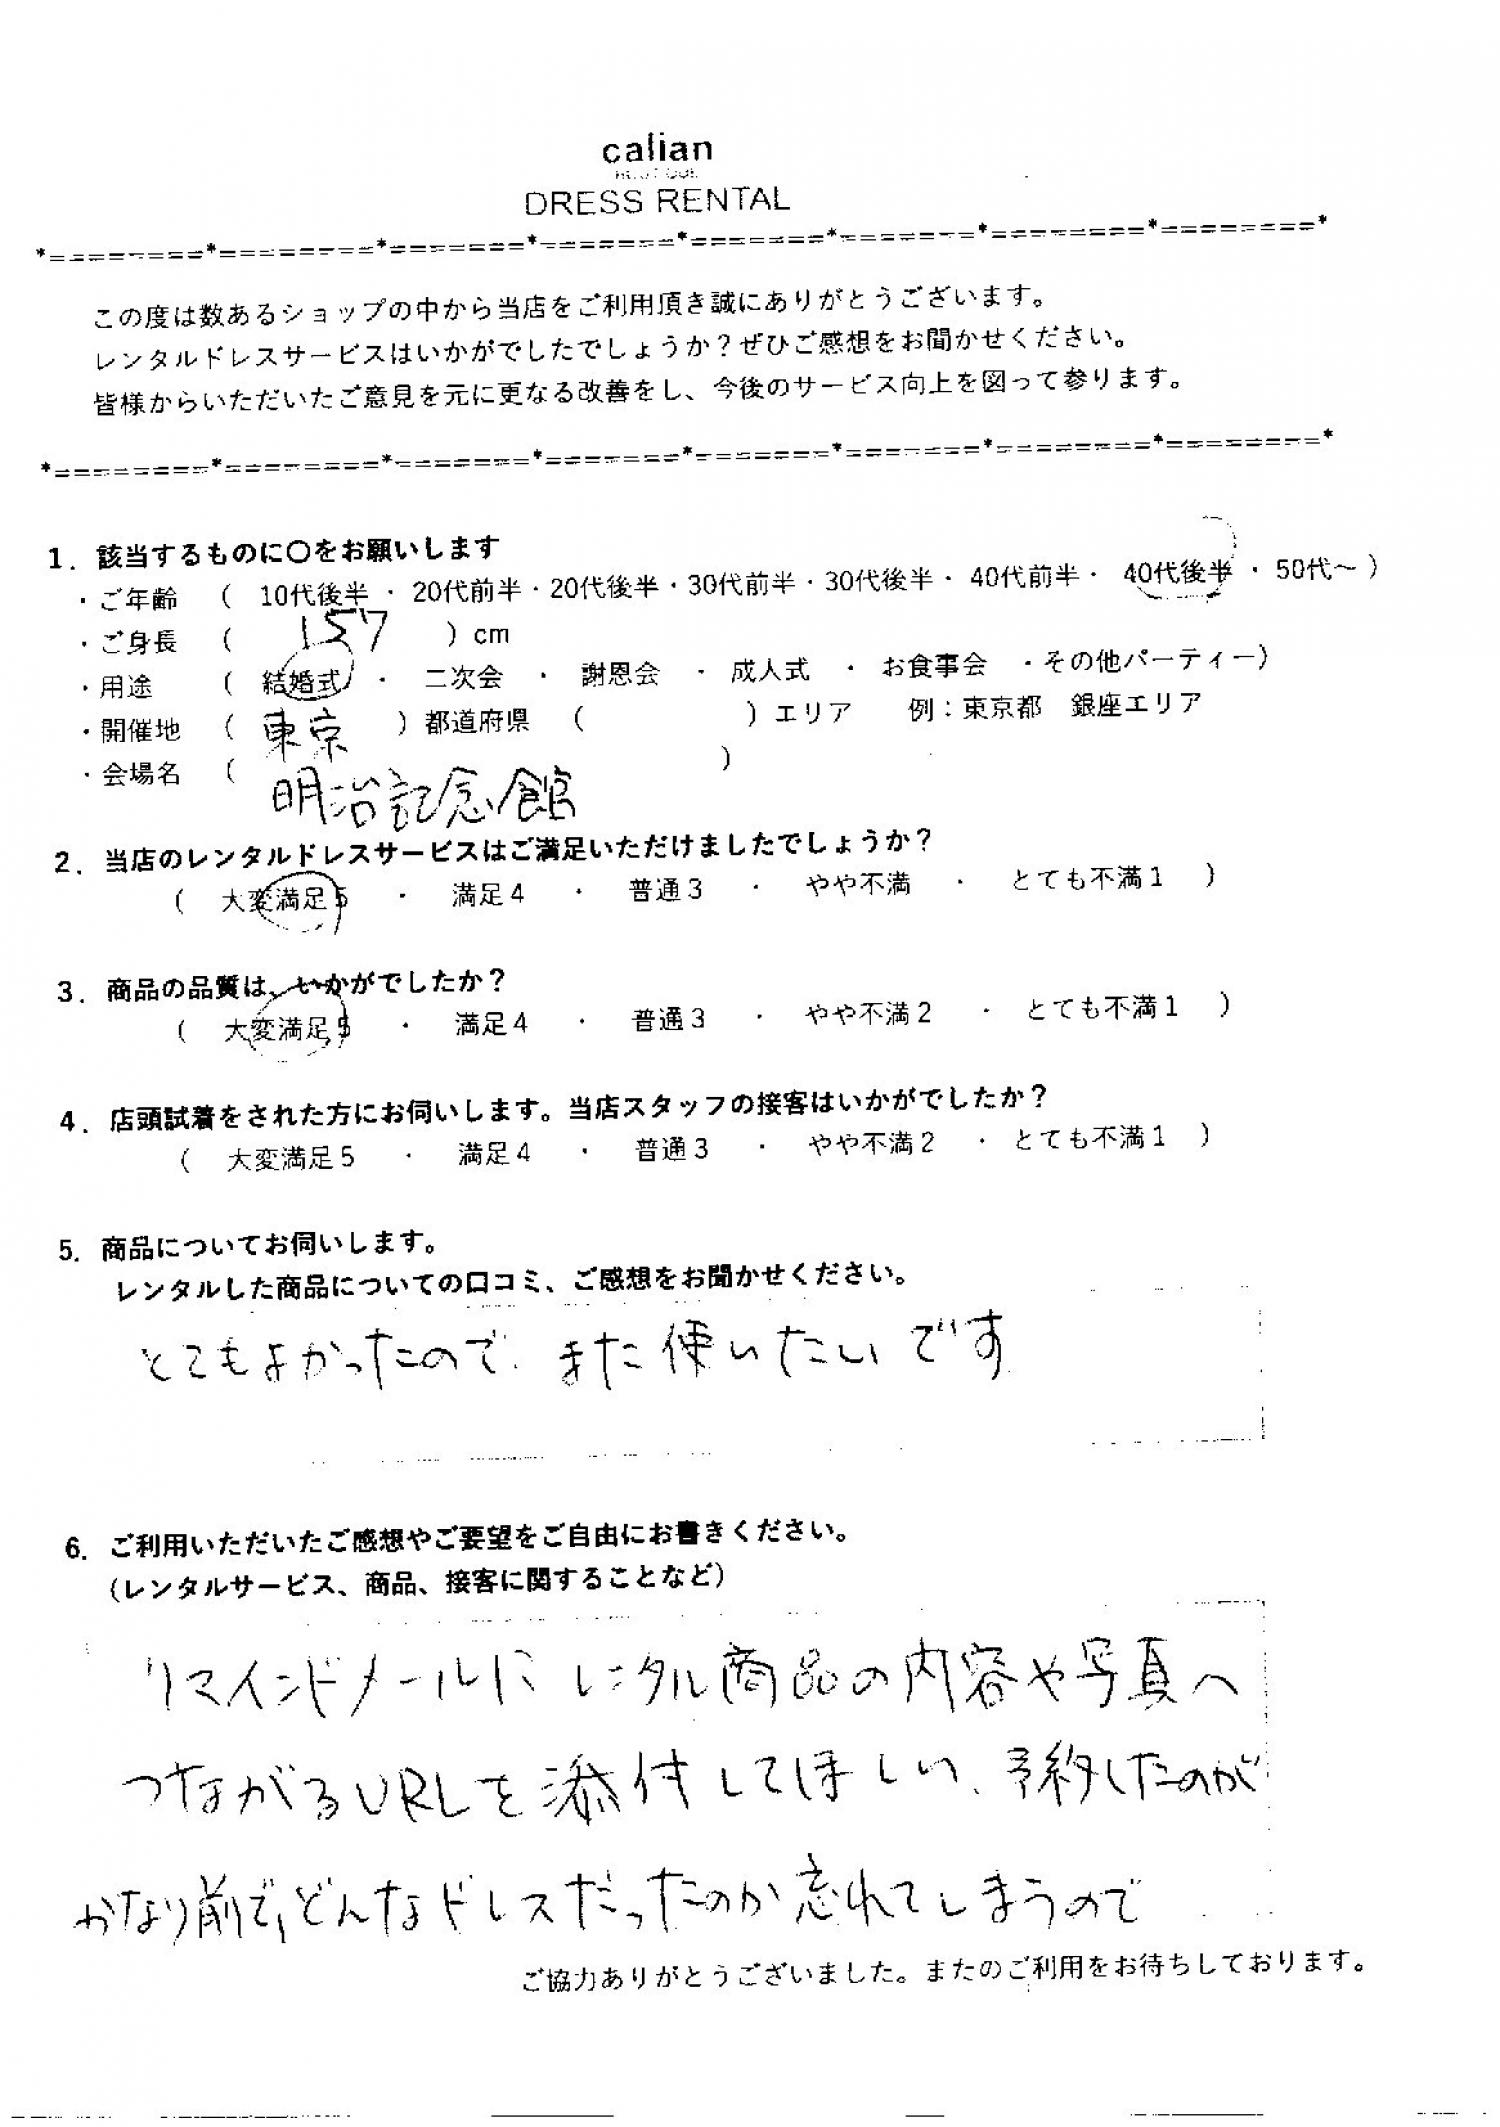 calian
DRESS RENTAL
*========*========*=======*=======*=======*=======*========*========*
この度は数あるショップの中から当店をご利用頂き誠にありがとうございます。
レンタルドレスサービスはいかがでしたでしょうか？ぜひご感想をお聞かせください。
皆様からいただいたご意見を元に更なる改善をし、今後のサービス向上を図って参ります。
*========*========*=======*=======*=======*=======*========*========*
1. 該当するものに〇をお願いします
・ご年齢 （ 10代後半・20代前半・20代後半・30代前半・30代後半・40代前半・40代後半・50代～）
・ご身長 （ 157 ）cm
・用途 （ 結婚式 ・ 二次会 ・ 謝恩会 ・ 成人式 ・ お食事会 ・その他パーティー）
・開催地 （ 東京 ）都道府県 （ ）エリア 例：東京都 銀座エリア
・会場名 （ 明治記念館 ）
2. 当店のレンタルドレスサービスはご満足いただけましたでしょうか？
（ 大変満足5 ・ 満足4 ・ 普通3 ・ やや不満 ・ とても不満1 ）
3. 商品の品質は、いかがでしたか？
（ 大変満足5 ・ 満足4 ・ 普通3 ・ やや不満2 ・ とても不満1 ）
4. 店頭試着をされた方にお伺いします。当店スタッフの接客はいかがでしたか？
（ 大変満足5 ・ 満足4 ・ 普通3 ・ やや不満2 ・ とても不満1 ）
5. 商品についてお伺いします。
レンタルした商品についての口コミ、ご感想をお聞かせください。
とてもよかったので、また使いたいです
6. ご利用いただいたご感想やご要望をご自由にお書きください。
（レンタルサービス、商品、接客に関することなど）
リマインドメールに レンタル商品の内容や写真へ
つながるURLを添付してほしい、予約したのが
かなり前で、どんなドレスだったのか忘れてしまうので
ご協力ありがとうございました。またのご利用をお待ちしております。